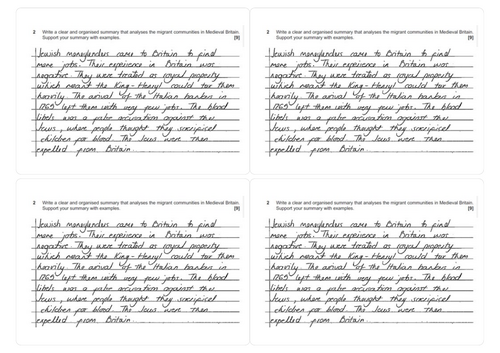 2 Write a clear and organised summary that analyses the migrant communities in Medieval Britain.
Support your summary with examples.
[9]
Jewish moneylenders came to Britain to find
more jobs. Their experience in Britain was
negative. They were treated as royal property
which meant the King - Henry could tax them
heavily. The arrival of the Italian bankers in
1265 left them with very few jobs. The blood
libels was a false accusation against the
Jews, where people thought they sacrificed
children for blood. The Jews were then
expelled from Britain.
2 Write a clear and organised summary that analyses the migrant communities in Medieval Britain.
Support your summary with examples.
[9]
Jewish moneylenders came to Britain to find
more jobs. Their experience in Britain was
negative. They were treated as royal property
which meant the King - Henry could tax them
heavily. The arrival of the Italian bankers in
1265 left them with very few jobs. The blood
libels was a false accusation against the
Jews, where people thought they sacrificed
children for blood. The Jews were then
expelled from Britain.
2 Write a clear and organised summary that analyses the migrant communities in Medieval Britain.
Support your summary with examples.
[9]
Jewish moneylenders came to Britain to find
more jobs. Their experience in Britain was
negative. They were treated as royal property
which meant the King - Henry could tax them
heavily. The arrival of the Italian bankers in
1265 left them with very few jobs. The blood
libels was a false accusation against the
Jews, where people thought they sacrificed
children for blood. The Jews were then
expelled from Britain.
2 Write a clear and organised summary that analyses the migrant communities in Medieval Britain.
Support your summary with examples.
[9]
Jewish moneylenders came to Britain to find
more jobs. Their experience in Britain was
negative. They were treated as royal property
which meant the King - Henry could tax them
heavily. The arrival of the Italian bankers in
1265 left them with very few jobs. The blood
libels was a false accusation against the
Jews, where people thought they sacrificed
children for blood. The Jews were then
expelled from Britain.